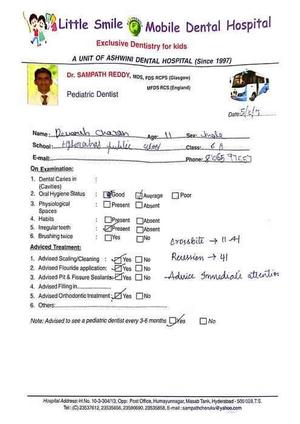 Little Smile Mobile Dental Hospital
Exclusive Dentistry for kids
A UNIT OF ASHWINI DENTAL HOSPITAL (Since 1997)
Dr. SAMPATH REDDY, MDS, FDS RCPS (Glasgow)
MFDS RCS (England)
Pediatric Dentist
Date: 5/2/17
Name: Devansh Charan Age: 11 Sex: Male
School: Hyderabad public Class: 6 A
E-mail: Phone:
On Examination:
1. Dental Caries in :
(Cavities)
2. Oral Hygiene Status : Good Average Poor
3. Physiological : Present Absent
Spaces
4. Habits : Present Absent
5. Irregular teeth : Present Absent
6. Brushing twice : Yes No
Crossbite → 11,41
Adviced Treatment:
1. Advised Scaling/Cleaning : Yes No
Recession → 41
2. Advised Flouride application: Yes No
3. Advised Pit & Fissure Sealants: Yes No
- Advice Immediate attention
4. Advised Filling in
5. Advised Orthodontic treatment: Yes No
6. Others:
Note: Advised to see a pediatric dentist every 3-6 months Yes No
Hospital Address: H.No. 10-3-304/13, Opp: Post Office, Humayunnagar, Masab Tank, Hyderabad - 500 028.T.S.
Tel: (C) 23537612, 23535656, 23580690, 23535858, E-mail: sampathcheruku@yahoo.com